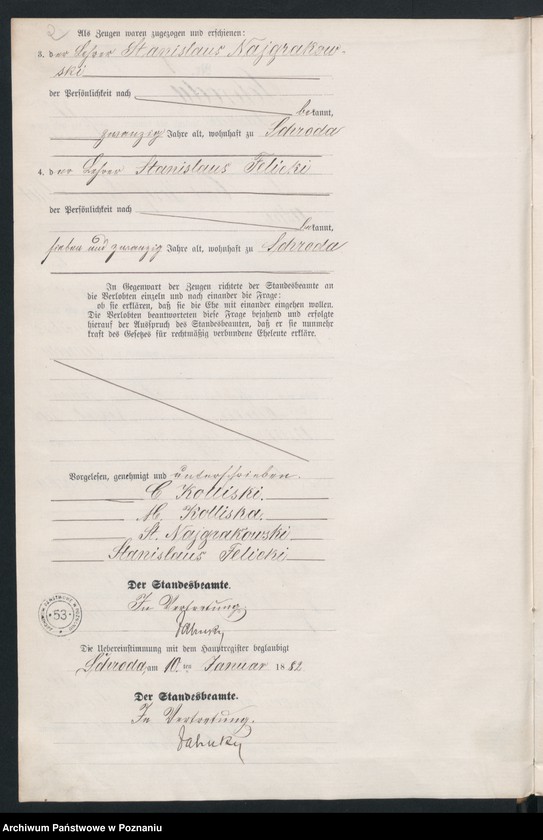 Als Zeugen waren zugezogen und erschienen:
3. der Lehrer Stanislaus Najgrakow-
ski
der Persönlichkeit nach
bekannt,
zwanzig Jahre alt, wohnhaft zu Schroda
4. der Lehrer Stanislaus Felicki
der Persönlichkeit nach
bekannt,
sieben und zwanzig Jahre alt, wohnhaft zu Schroda
In Gegenwart der Zeugen richtete der Standesbeamte an
die Verlobten einzeln und nach einander die Frage:
ob sie erklären, daß sie die Ehe mit einander eingehen wollen.
Die Verlobten beantworteten diese Frage bejahend und erfolgte
hierauf der Ausspruch des Standesbeamten, daß er sie nunmehr
kraft des Gesetzes für rechtmäßig verbundene Eheleute erkläre.
Vorgelesen, genehmigt und unterschrieben.
C Kolliski.
M. Kolliska.
St. Najgrakowski
Stanislaus Felicki
Der Standesbeamte.
In Vertretung
53
Die Uebereinstimmung mit dem Hauptregister beglaubigt
Schroda, am 10. ten Januar 1882
Der Standesbeamte.
In Vertretung.
Archiwum Państwowe w Poznaniu